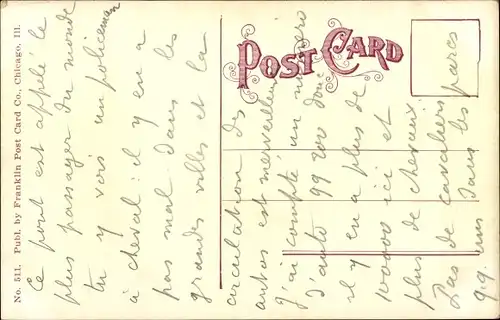 POST CARD
No. 511. Publ. by Franklin Post Card Co., Chicago, Ill.
Ce pont est appelé le
plus passager du monde
tu y vois un policeman
à cheval : il y en a
pas mal dans les
grandes villes et la
circulation des
autos est merveilleuse
J'ai compté un numéro
d'auto 99 200 donc
il y en a plus de
100000 ici et
plus de chevaux
Pas de cavaliers
dans les parcs